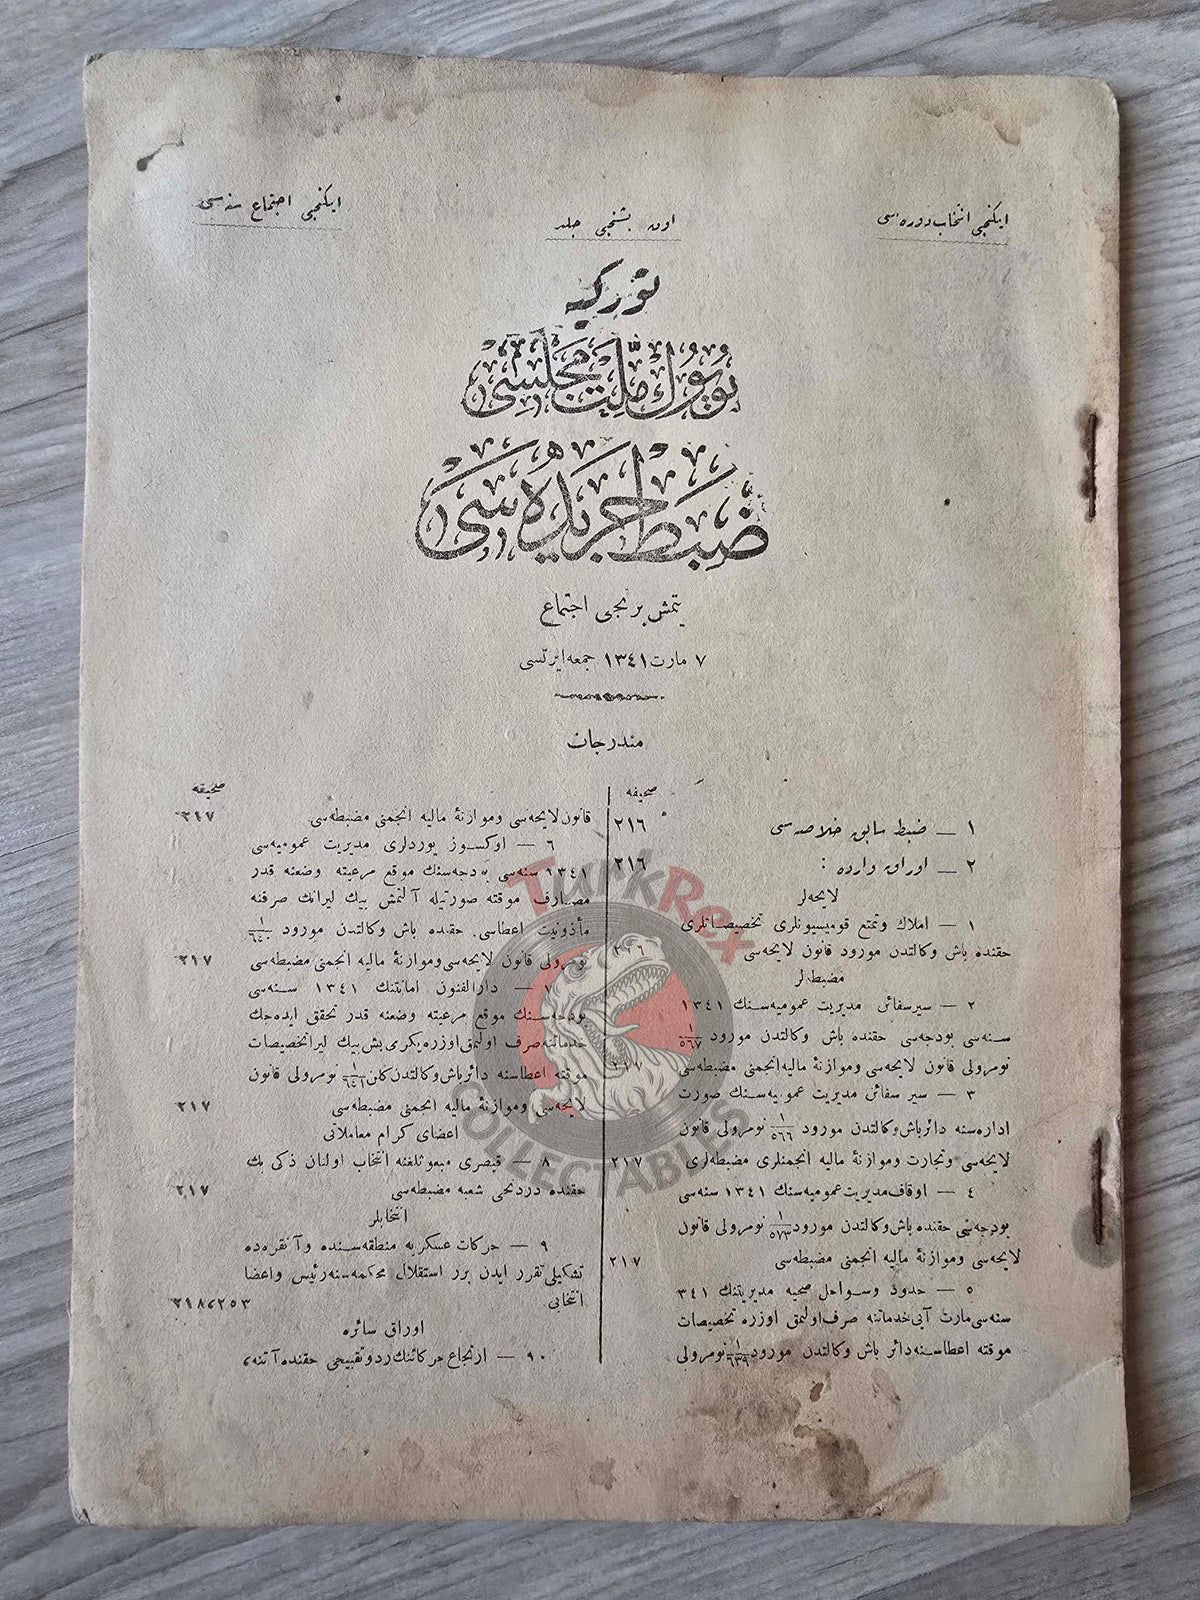 ایكنجی انتخاب دوره سی
اون بشنجی جلد
ایكنجی اجتماع سنه سی
توركیه
بویوك ملت مجلسی
ضبط جریده سی
یتمش برنجی اجتماع
۷ مارت ١٣٤١ جمعه ایرتسی
مندرجات
صحیفه
١ — ضبط سابق خلاصه سی ٢١٦
٢ — اوراق وارده : ٢١٦
لایحه لر
١ — املاك وتمتع قومیسیونلری تخصیصاتلری
حقنده باش وكالتدن مورود قانون لایحه سی
مضبطه لر
٢ — سیر سفائن مدیریت عمومیه سنك ١٣٤١
سنه سی بودجه سی حقنده باش وكالتدن مورود ١/٥٦٧
نومرولی قانون لایحه سی وموازنهٔ مالیه انجمنی مضبطه سی ٢١٧
٣ — سیر سفائن مدیریت عمومیه سنك صورت
اداره سنه دائر باش وكالتدن مورود ١/٥٦٦ نومرولی قانون
لایحه سی وتجارت وموازنهٔ مالیه انجمنلری مضبطه لری ٢١٧
٤ — اوقاف مدیریت عمومیه سنك ١٣٤١ سنه سی
بودجه سی حقنده باش وكالتدن مورود ١/٥٧٣ نومرولی قانون
لایحه سی وموازنهٔ مالیه انجمنی مضبطه سی ٢١٧
٥ — حدود وسواحل صحیه مدیریتنك ٣٤١
سنه سی مارت آیی خدماتنه صرف اولنمق اوزره تخصیصات
موقته اعطاسنه دائر باش وكالتدن مورود ١/٦٣٩ نومرولی
صحیفه
قانون لایحه سی وموازنهٔ مالیه انجمنی مضبطه سی ٢١٧
٦ — اوكسوز یوردلری مدیریت عمومیه سی
١٣٤١ سنه سی بودجه سنك موقع مرعیته وضعنه قدر
مصارف موقته صورتیله آلتمش بیك لیرانك صرفنه
مأذونیت اعطاسی حقنده باش وكالتدن مورود ١/٦٤٠
نومرولی قانون لایحه سی وموازنهٔ مالیه انجمنی مضبطه سی ٢١٧
٧ — دارالفنون امانتنك ١٣٤١ سنه سی
بودجه سنك موقع مرعیته وضعنه قدر تحقق ایده جك
خدماتنه صرف اولنمق اوزره یكرمی بش بیك لیرا تخصیصات
موقته اعطاسنه دائر باش وكالتدن كلن ١/٦٤٦ نومرولی قانون
لایحه سی وموازنهٔ مالیه انجمنی مضبطه سی ٢١٧
اعضای كرام معاملاتی
٨ — قیصری مبعوثلغنه انتخاب اولنان ذكی بك
حقنده دردنجی شعبه مضبطه سی ٢١٧
انتخابلر
٩ — حركات عسكریه منطقه سنده وآنقره ده
تشكیلی تقرر ایدن برر استقلال محكمه سنه رئیس واعضا
انتخابی
اوراق سائره
١٠ — ارتجاع حركاتنك رد وتقبیحی حقنده آتنه،
TurkRex
COLLECTABLES